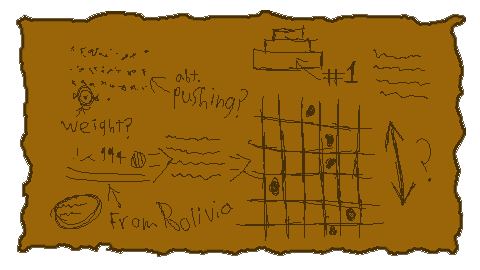 abt.
pushing?
#1
weight?
From Bolivia
?